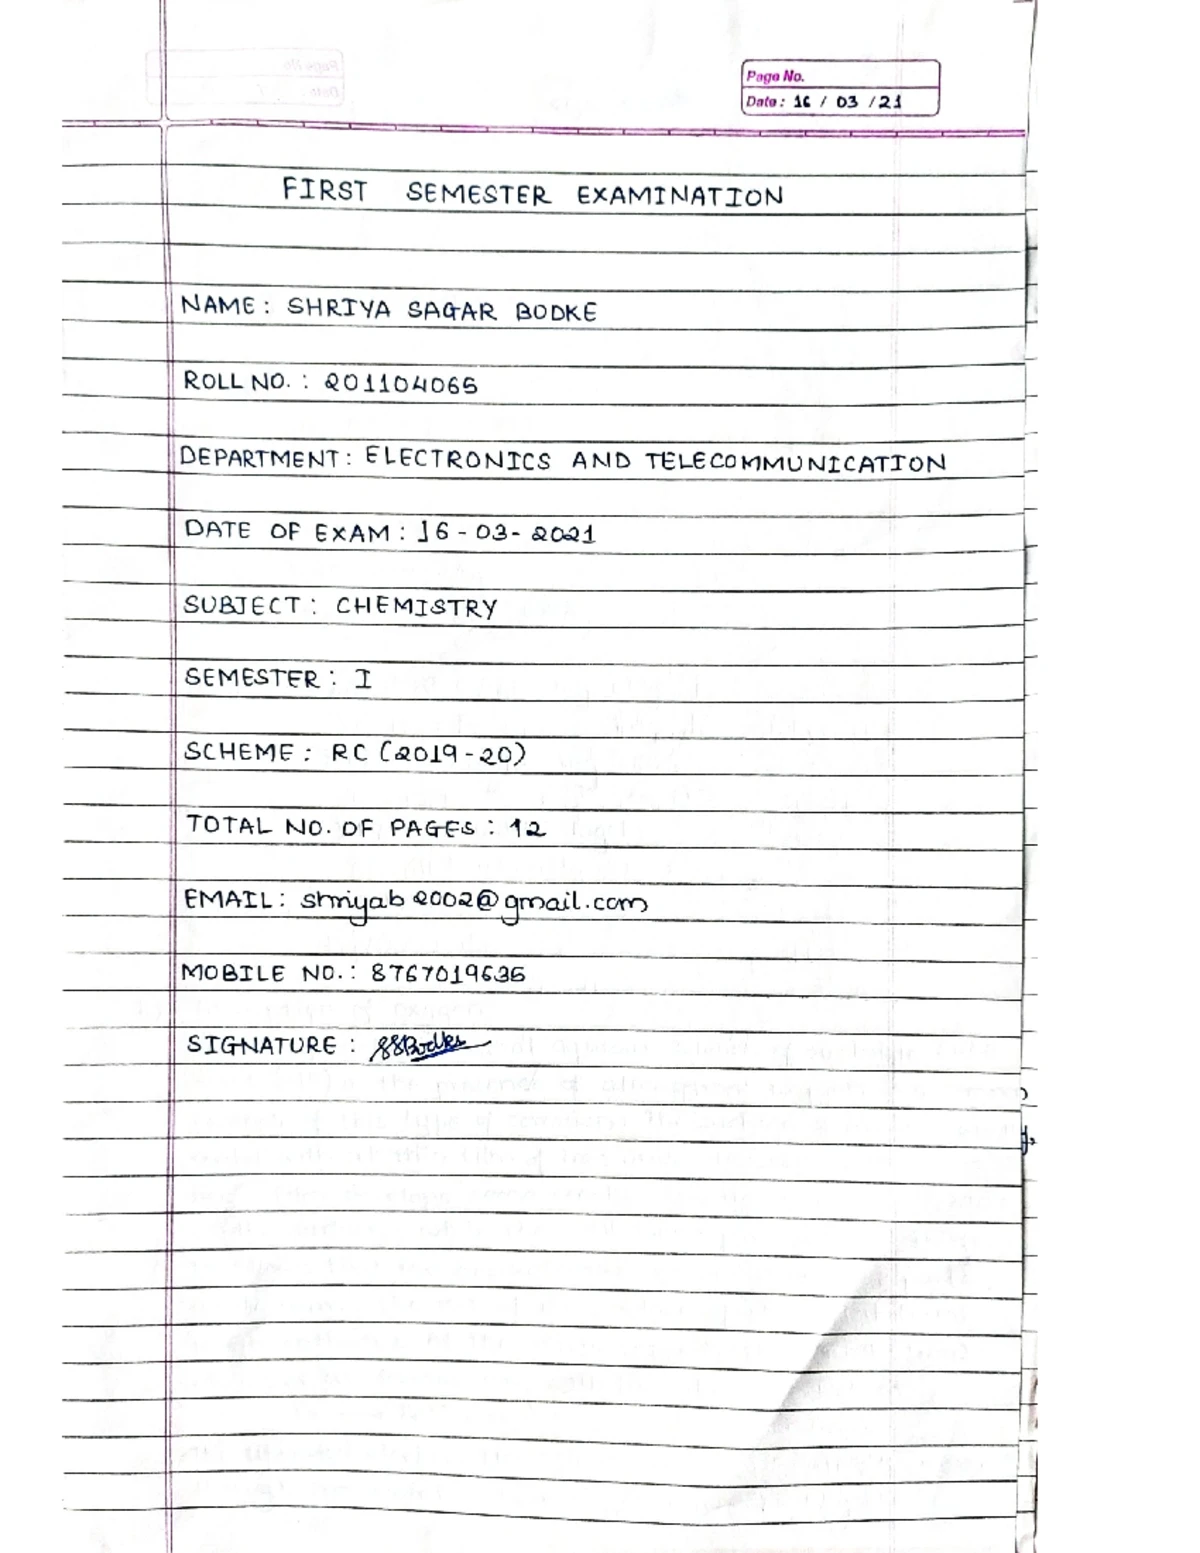 Page No.
Date: 16 / 03 / 21
FIRST SEMESTER EXAMINATION
NAME: SHRIYA SAGAR BODKE
ROLL NO. : 201104065
DEPARTMENT: ELECTRONICS AND TELECOMMUNICATION
DATE OF EXAM : 16 - 03 - 2021
SUBJECT : CHEMISTRY
SEMESTER : I
SCHEME : RC (2019 - 20)
TOTAL NO. OF PAGES : 12
EMAIL : shriyab2002@gmail.com
MOBILE NO. : 8767019635
SIGNATURE : SSBodke